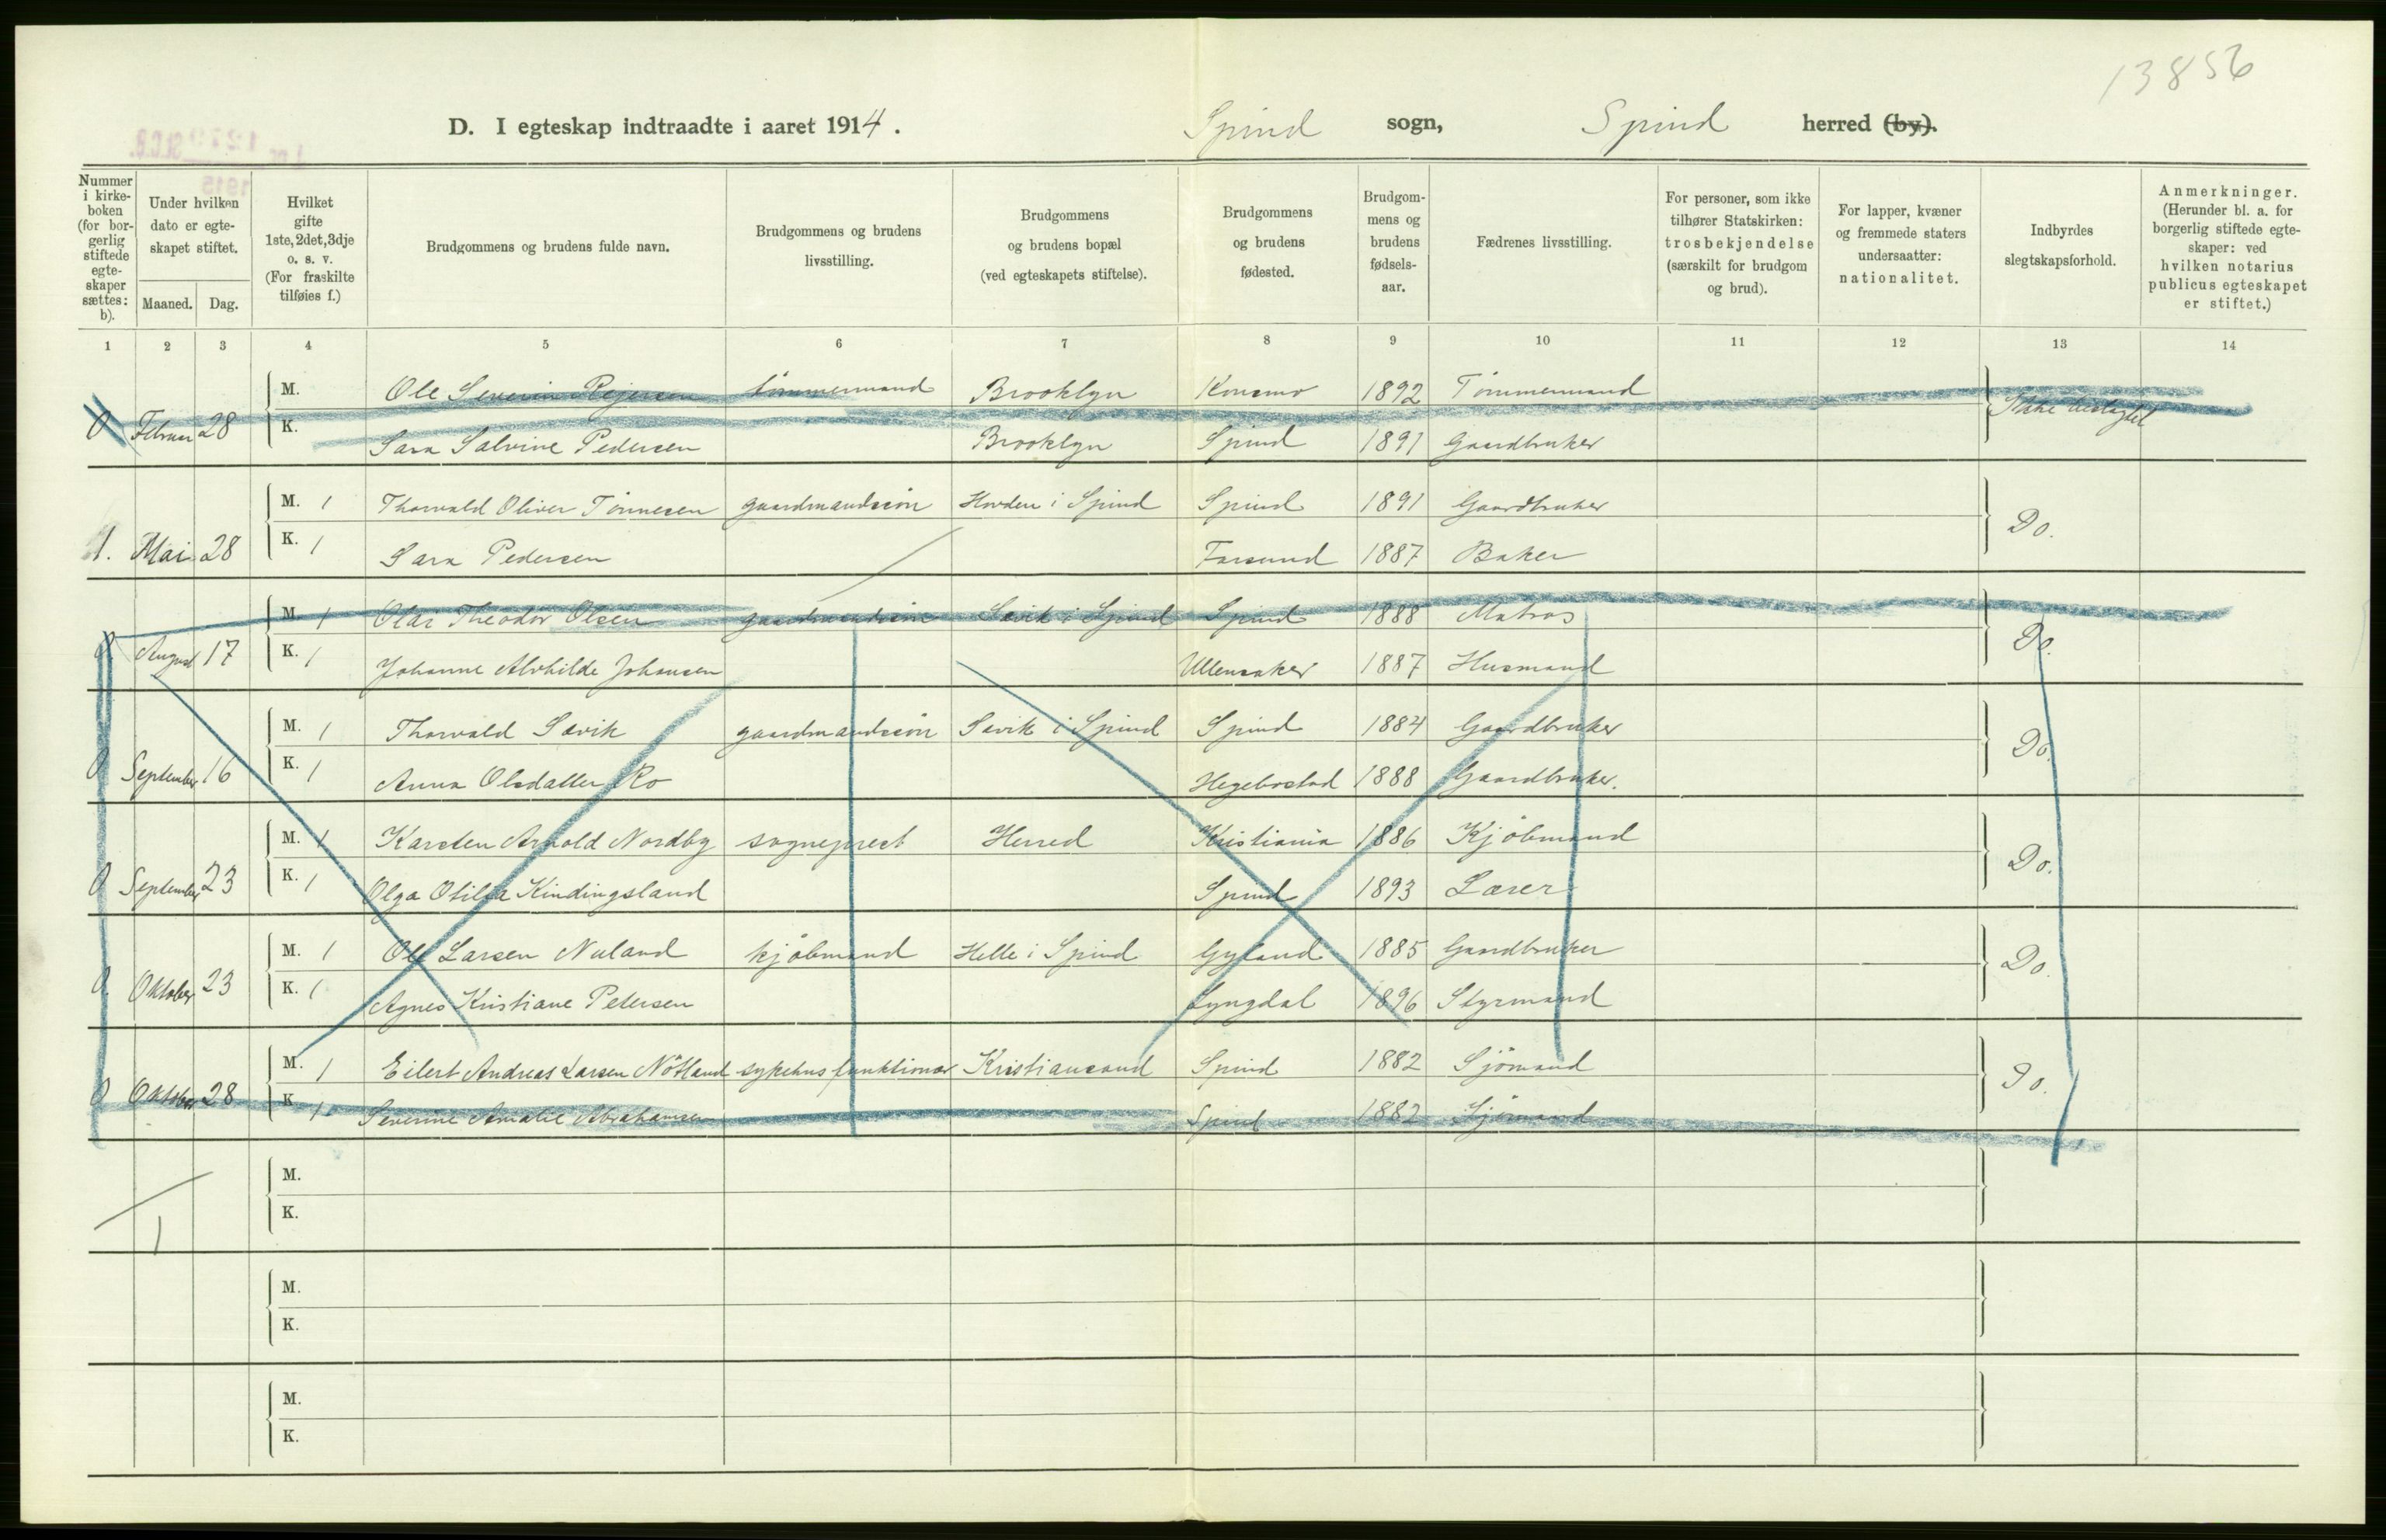 13856
D. I egteskap indtraadte i aaret 1914. Spind sogn, Spind herred (by).
Nummer i kirkeboken (for borgerlig stiftede egteskaper sættes: b).
Under hvilken dato er egteskapet stiftet.
Maaned. Dag.
Hvilket gifte 1ste, 2det, 3dje o. s. v. (For fraskilte tilføies f.)
Brudgommens og brudens fulde navn.
Brudgommens og brudens livsstilling.
Brudgommens og brudens bopæl (ved egteskapets stiftelse).
Brudgommens og brudens fødested.
Brudgommens og brudens fødselsaar.
Fædrenes livsstilling.
For personer, som ikke tilhører Statskirken: trosbekjendelse (særskilt for brudgom og brud).
For lapper, kvæner og fremmede staters undersaatter: nationalitet.
Indbyrdes slegtskapsforhold.
Anmerkninger. (Herunder bl. a. for borgerlig stiftede egteskaper: ved hvilken notarius publicus egteskapet er stiftet.)
1 2 3 4 5 6 7 8 9 10 11 12 13 14
M. Ole Severin Rejersen tömmermand Brooklyn Konsmo 1892 Tömmermand
0 Februar 28 K. Sara Salvine Pedersen Brooklyn Spind 1891 Gaardbruker Ikke beslegtet
M. 1 Thorvald Oliver Tönnesen gaardmandssön Hovden i Spind Spind 1891 Gaardbruker
1. Mai 28 K. 1 Sara Pedersen Farsund 1887 Baker Do.
M. 1 Olai Theodor Olsen gaardmandssön Sævik i Spind Spind 1888 Matros
0 August 17 K. 1 Johanne Alvhilde Johansen Ullensaker 1887 Husmand Do.
M. 1 Thorvald Sævik gaardmandssön Sævik i Spind Spind 1884 Gaardbruker
0 September 16 K. 1 Anna Olsdatter Ro Hegebostad 1888 Gaardbruker. Do.
M. 1 Karsten Arnold Nordby sogneprest Herred Kristiania 1886 Kjöbmand
0 September 23 K. 1 Olga Otilia Kindingsland Spind 1893 Lærer Do.
M. 1 Ole Larsen Nuland kjöbmand Helle i Spind Gyland 1885 Gaardbruker
0. Oktober 23 K. 1 Agnes Kristiane Petersen Lyngdal 1896 Styrmand Do.
M. 1 Eilert Andreas Larsen Nötland sykehusfunktionær Kristiansand Spind 1882 Sjömand
0 Oktober 28 K. 1 Severine Amalie Abrahamsen Spind 1882 Sjömand Do.
M.
K.
1
M.
K.
M.
K.